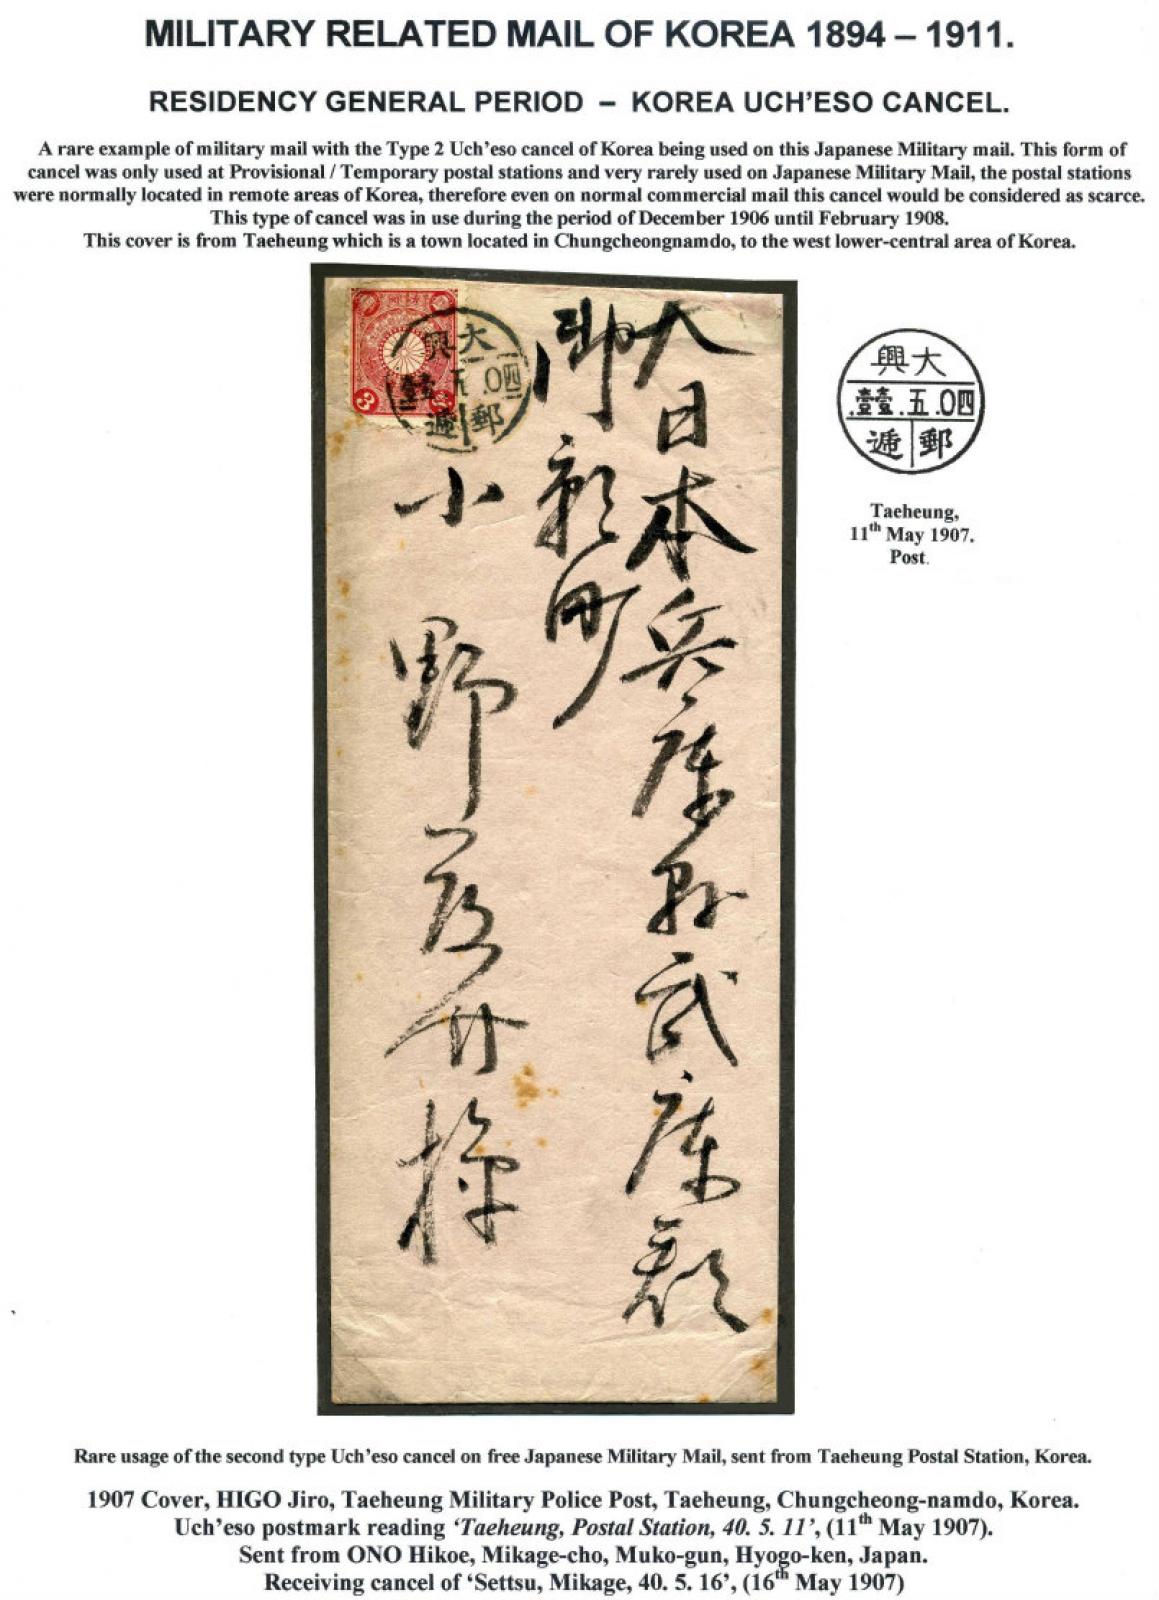 MILITARY RELATED MAIL OF KOREA 1894 – 1911.
RESIDENCY GENERAL PERIOD – KOREA UCH'ESO CANCEL.
A rare example of military mail with the Type 2 Uch'eso cancel of Korea being used on this Japanese Military mail. This form of
cancel was only used at Provisional / Temporary postal stations and very rarely used on Japanese Military Mail, the postal stations
were normally located in remote areas of Korea, therefore even on normal commercial mail this cancel would be considered as scarce.
This type of cancel was in use during the period of December 1906 until February 1908.
This cover is from Taeheung which is a town located in Chungcheongnamdo, to the west lower-central area of Korea.
3
興大
壹壹.五.0四
逓郵
大日本兵庫县武庫郡
御影町
小野
興大
.壹壹.五.0四
逓郵
Taeheung,
11th May 1907.
Post.
Rare usage of the second type Uch'eso cancel on free Japanese Military Mail, sent from Taeheung Postal Station, Korea.
1907 Cover, HIGO Jiro, Taeheung Military Police Post, Taeheung, Chungcheong-namdo, Korea.
Uch'eso postmark reading 'Taeheung, Postal Station, 40. 5. 11', (11th May 1907).
Sent from ONO Hikoe, Mikage-cho, Muko-gun, Hyogo-ken, Japan.
Receiving cancel of 'Settsu, Mikage, 40. 5. 16', (16th May 1907)